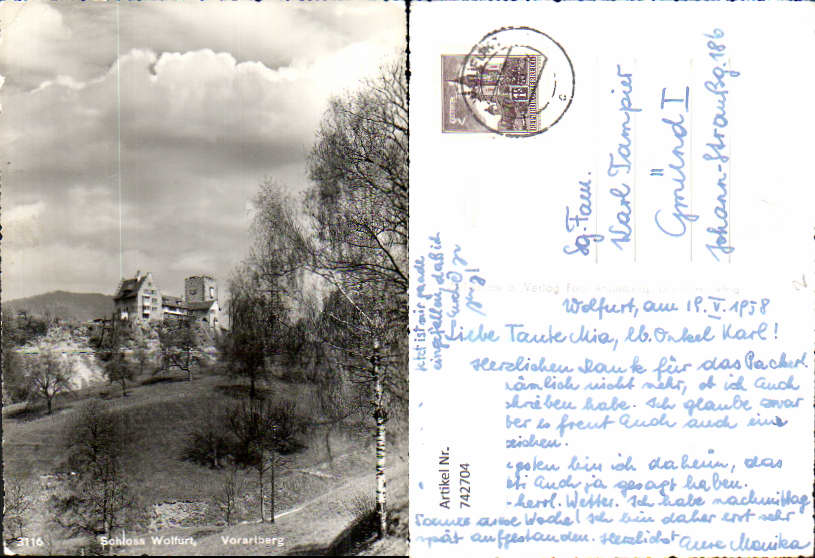 3116 Schloss Wolfurt, Vorarlberg
REPUBLIK ÖSTERREICH
Sg. Fam.
Karl Tampier
Gmünd I
Johann-Straußg. 186
Wolfurt, am 19. V. 1958
Liebe Tante Mia, lb. Onkel Karl!
Herzlichen Dank für das Packerl.
nämlich nicht mehr, ob ich Euch
schrieben habe. Ich glaube zwar
ber es freut Euch auch ein
zeichen.
gsten bin ich daheim, das
Euch ja gesagt haben.
herrl. Wetter. Ich habe nachmittag
diese Woche! Ich bin daher erst sehr
spät aufgestanden. Herzlichst Eure Monika
Jetzt ist mir gerade
eingefallen, daß ich
Artikel Nr.
742704